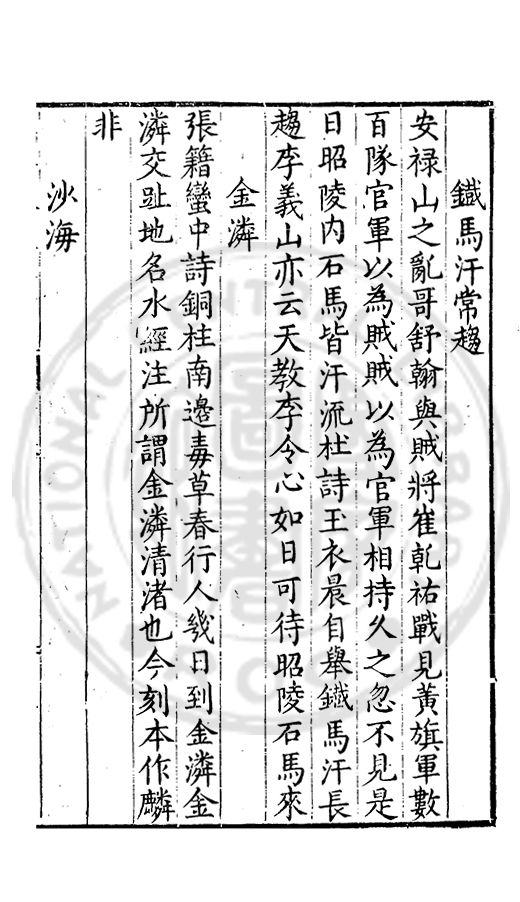 鐵馬汗常趨
安禄山之亂哥舒翰與賊將崔乹祐戰見黃旗軍數
百隊官軍以為賊賊以為官軍相持久之忽不見是
日昭陵内石馬皆汗流杜詩玉衣晨自舉鐵馬汗長
趨李義山亦云天教李令心如日可待昭陵石馬來
金潾
張籍蠻中詩銅柱南邊毒草春行人幾日到金潾金
潾交趾地名水經注所謂金潾清渚也今刻本作麟
非
沙海